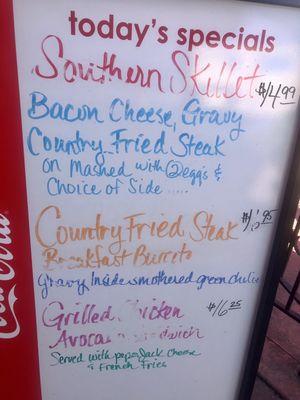 today's specials
Southern Skillet $14.99
Bacon Cheese, Gravy
Country Fried Steak
on Mashed with 2 eggs &
Choice of Side .....
Country Fried Steak
Breakfast Burrito
Gravy Inside smothered green chile
Grilled Chicken $16.25
Avocado Sandwich
Served with pepperJack cheese
& French Fries
Coca-Cola